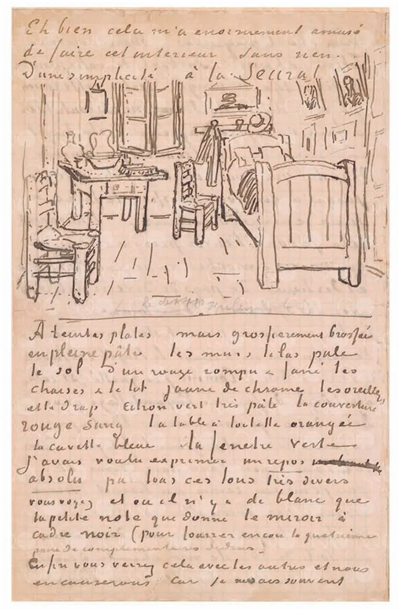 Eh bien cela m'a enormement amusé
de faire cet interieur sans rien.
D'une simplicité à la Seurat
A teintes plates mais grossierement brossée
en pleine pâte les murs lilas pale
le sol d'un rouge rompu & fané les
chaises & le lit jaune de chrome les oreillers
et le drap citron vert très pâle la couverture
rouge sang la table à toilette orangée
la cuvette bleue la fenetre verte
J'avais voulu exprimer un repos
absolu par tous ces tons très divers
vous voyez et ou il n'y a de blanc que
la petite note que donne le miroir à
cadre noir (pour fourrer encore la quatrieme
paire de complementaires dedans)
Enfin vous verrez cela avec les autres et nous
en causerons car je ne sais souvent